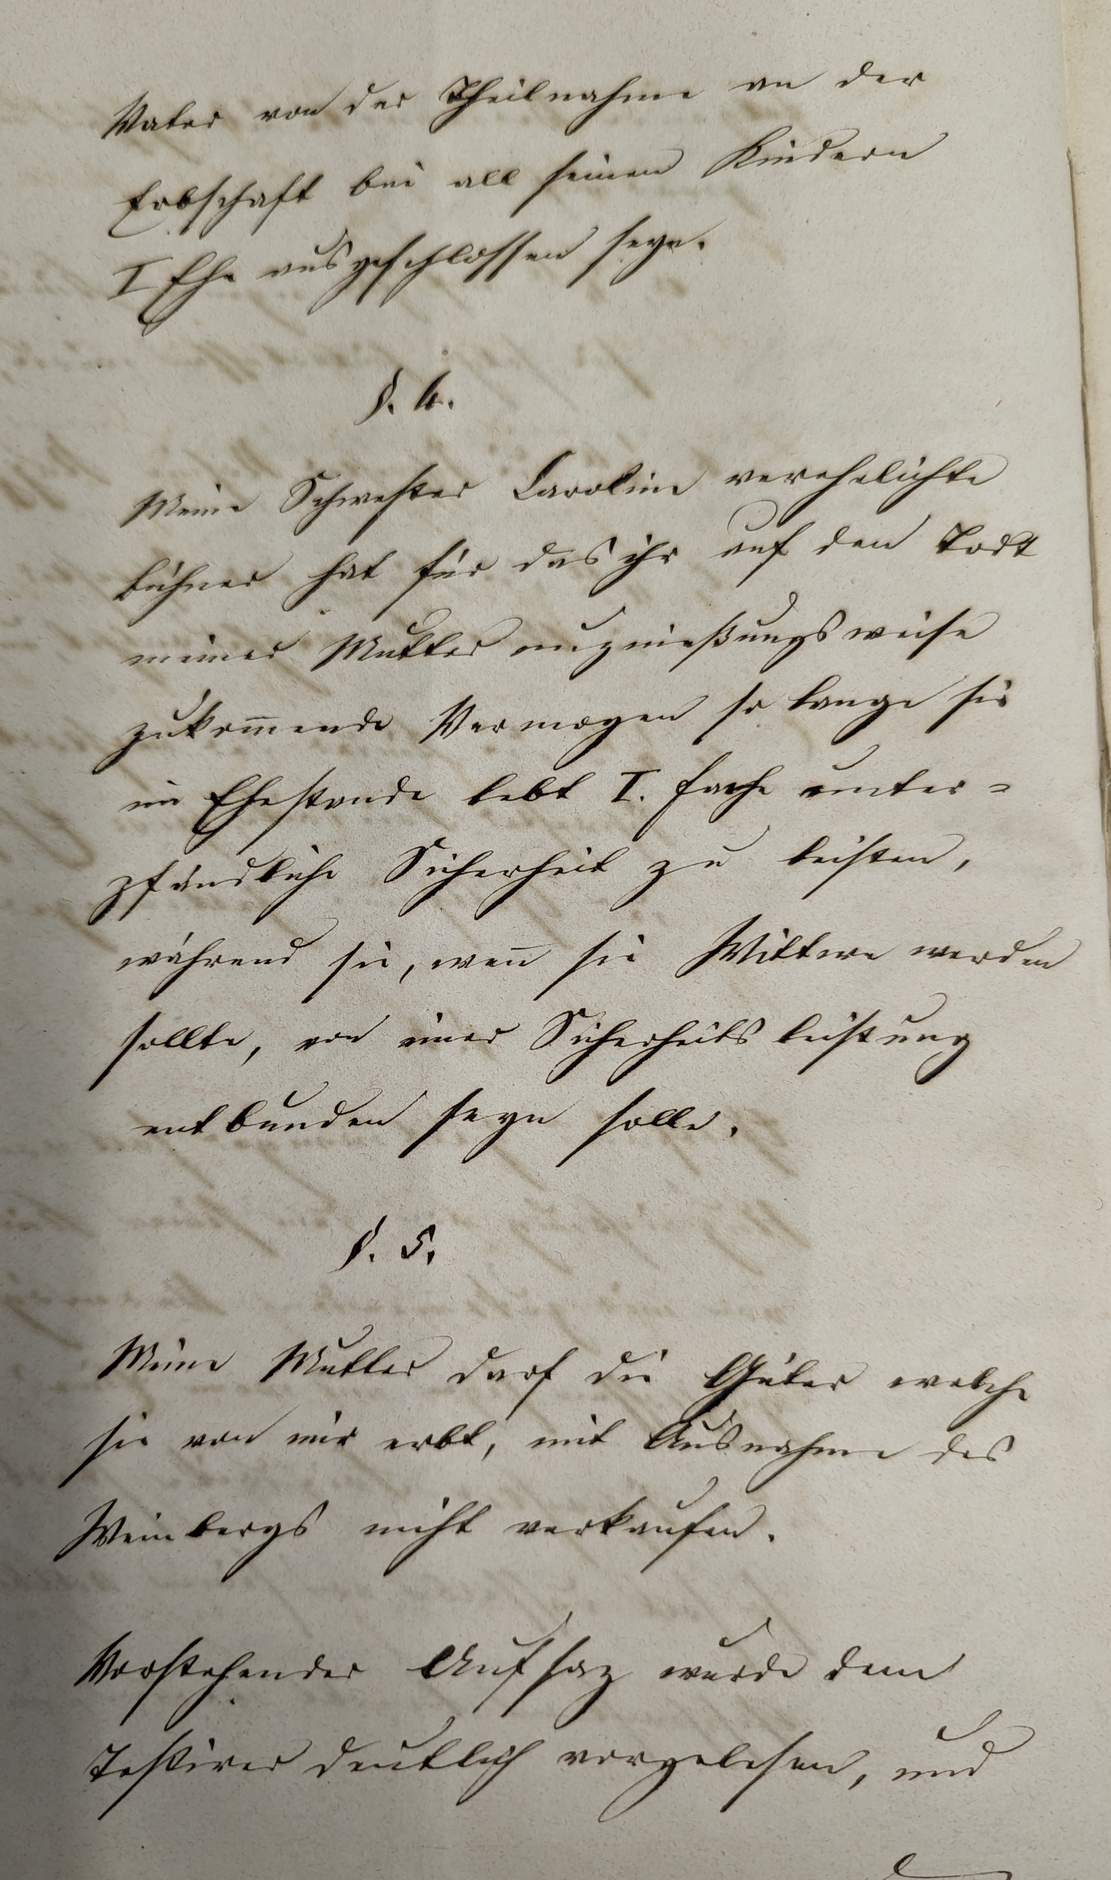 Vater von der Theilnahme an der
Erbschaft bei all seinen Kindern
I Ehe ausgeschlossen seyn.
§. 4.
Meine Schwester Caroline verehelichte
hat für das ihr auf den Todt
meiner Mutter nuznießungsweise
zukom̅ende Vermögen so lange sie
im Ehestande lebt I. fache unter=
pfändliche Sicherheit zu leisten,
während sie, wen̅ sie Wittwe werden
sollte, von einer Sicherheitsleistung
entbunden seyn solle.
§. 5.
Meine Mutter darf die Güter welche
sie von mir erbt, mit Ausnahme des
Weinbergs nicht verkaufen.
Vorstehender Aufsaz wurde dem
Testirer deutlich vorgelesen, und